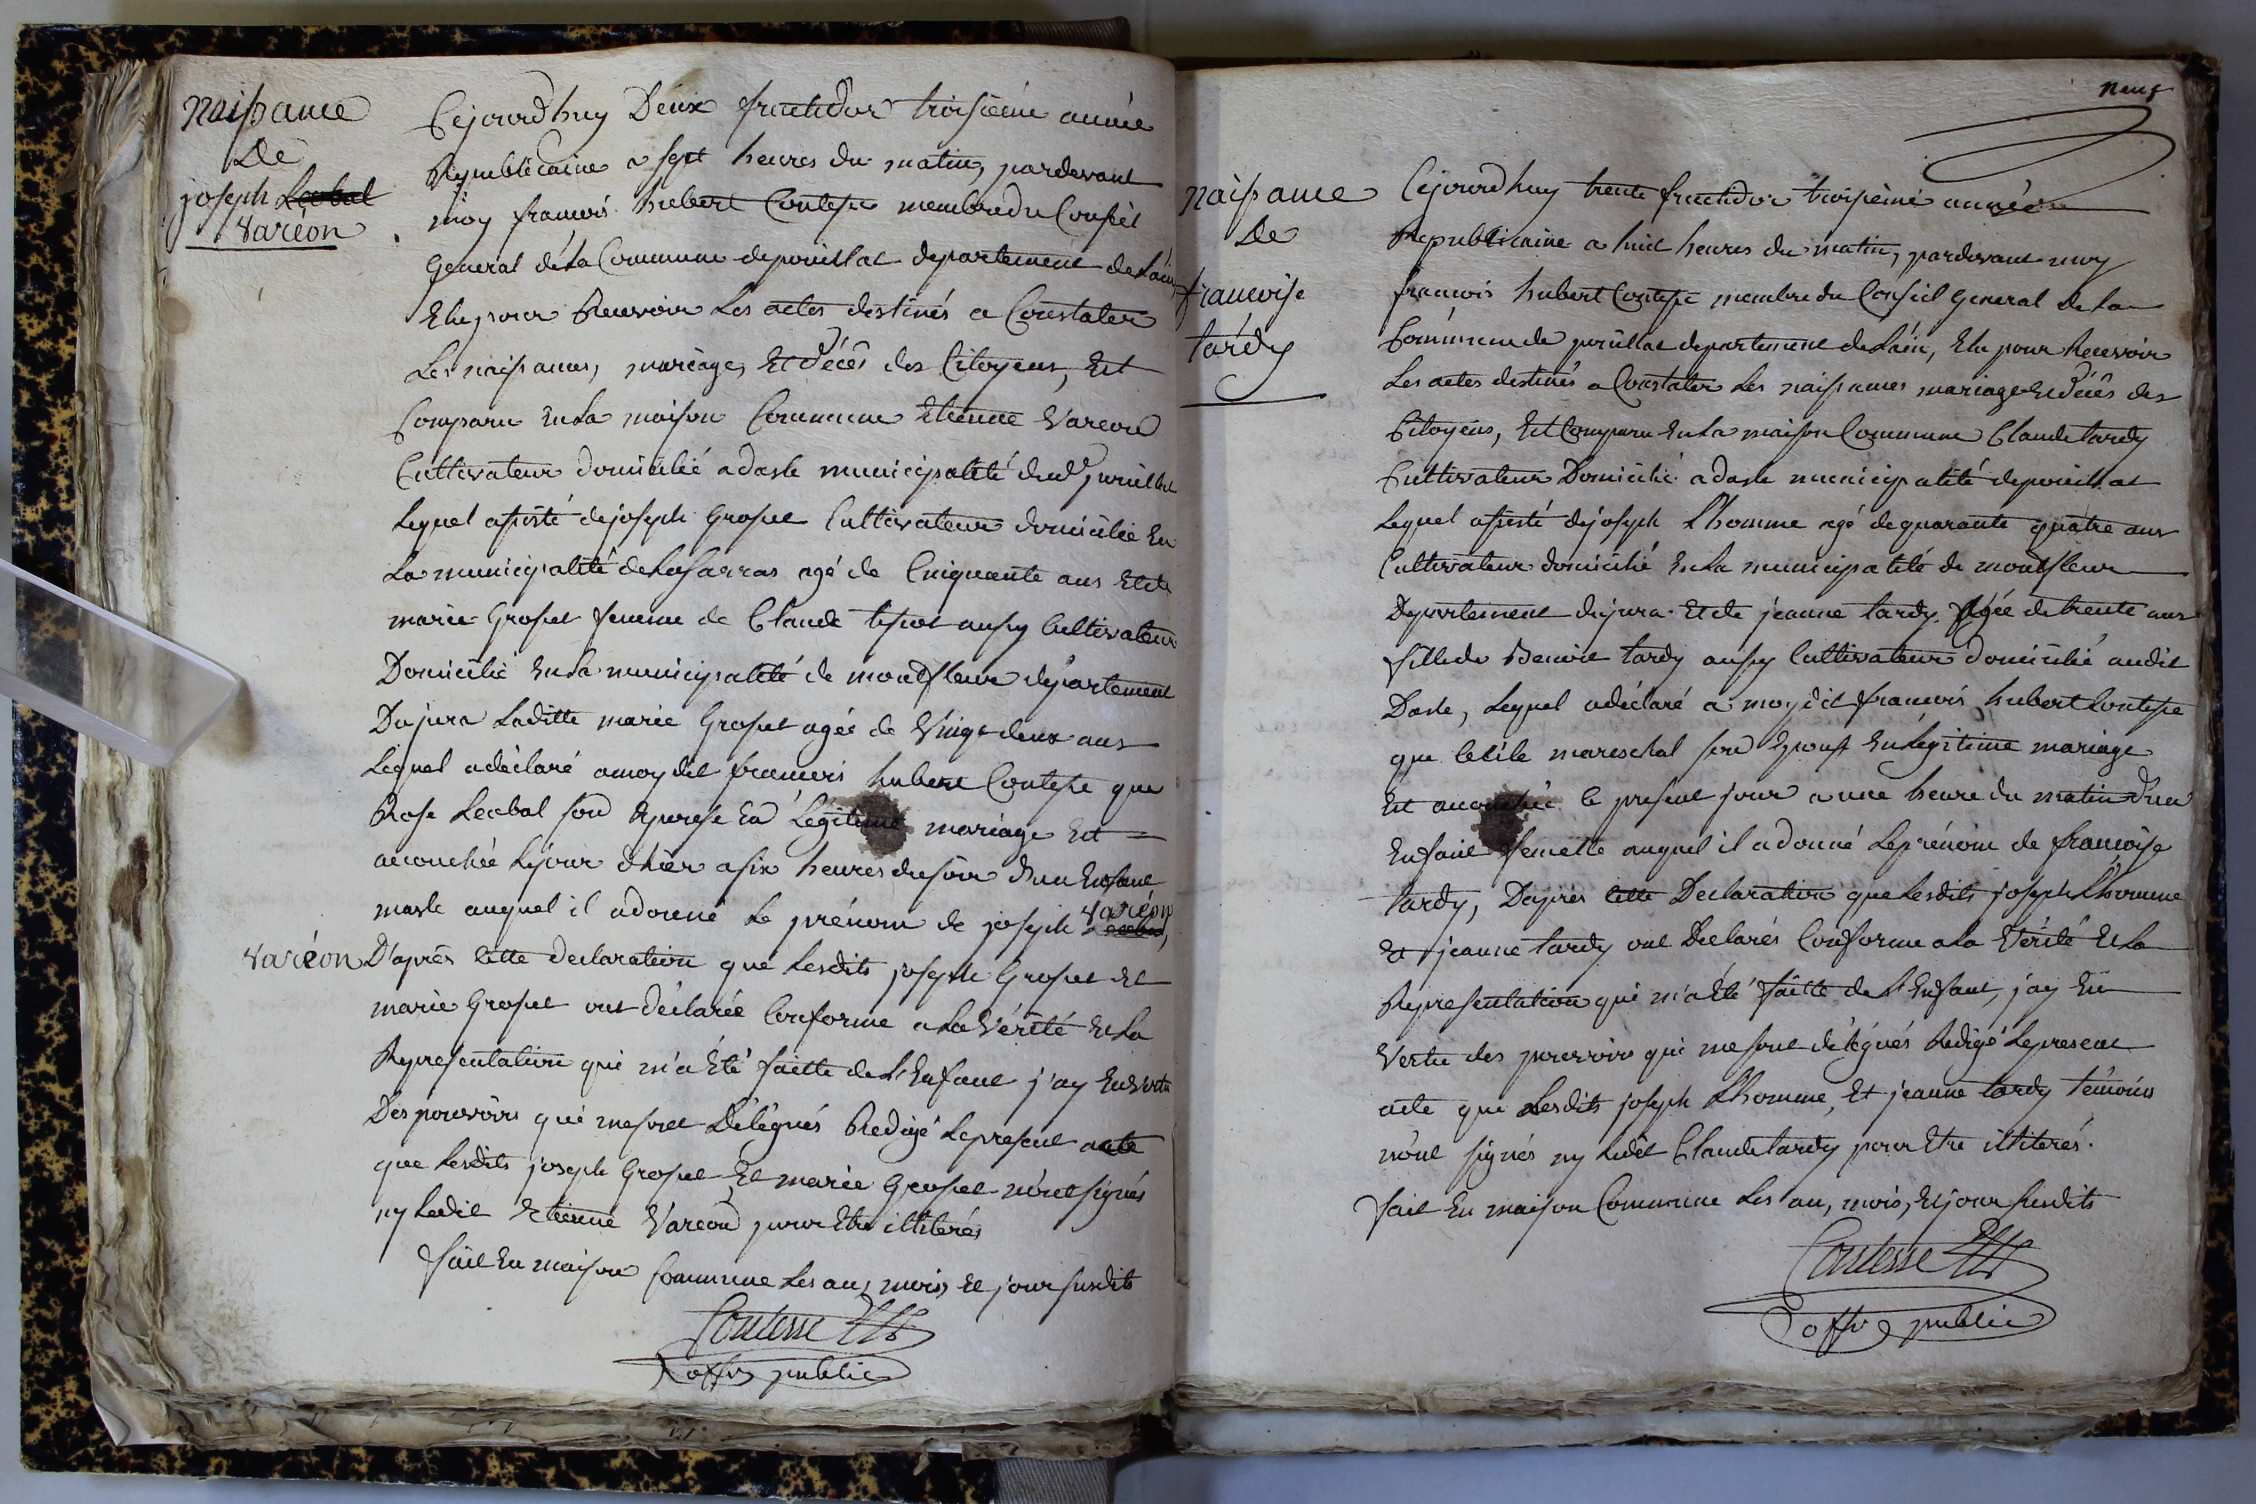 naissance
De
joseph Lecbal
varéon
Cejourdhuy Deux fructidor troisieme année
Republicaine a sept heures du matin, pardevant
moy francois hubert Contesse membre du Conseil
General de La Commune de pouillat departement de Lain,
Elu pour Recevoir Les actes destinés a Constater
Les naissances, mariages, Et décés des Citoyens, Est
Comparu En La maison Commune Etienne Vareon
Cultivateur domicilié a dasle municipalité dud. pouillat
Lequel assisté de joseph Grosset Cultivateur domicilié En
La municipalité de Lasarras agé de Cinquante ans Et de
marie Grosset femme de Claude tissot aussy Cultivateur
Domicilié En La municipalité de montfleur département
Du jura Laditte marie Grosset agée de Vingt deux ans
Lequel a déclaré a moy dit francois hubert Contesse que
Rose Lecbal son Epouse En Légitime mariage Est
accouchée Le jour dhier a six heures du soir d'un Enfant
masle auquel il a donné Le prénom de joseph varéon
varéon D'après Cette declaration que Lesdits joseph Grosset Et
marie Grosset ont déclarée Conforme a La Vérité Et La
Representation qui m'a Eté faitte de L'Enfant j'ay En Vertu
Des pouvoirs qui me sont Délégués Redigé Le present acte
que Lesdits joseph Grosset Et marie Grosset n'ont signés
ny Ledit Etienne Vareon pour Etre illiterés
fait En maison Commune Les an, mois, Et jour susdits
Contesse
offr public
neuf
naissance
De
francoise
tardy
Cejourdhuy trente fructidor troisieme année
Republicaine a huit heures du matin, pardevant moy
francois hubert Contesse membre du Conseil General de La
Commune de pouillat departement de Lain, Elu pour Recevoir
Les actes destinés a Constater Les naissances mariage Et décés des
Citoyens, Est Comparu En La maison Commune Claude tardy
Cultivateur Domicilié a dasle municipalité de pouillat
Lequel assisté de joseph Lhomme agé de quarante quatre ans
Cultivateur domicilié En La municipalité de montfleur
Departement du jura Et de jeanne tardy Agée de trente ans
fille de Benoit tardy aussy Cultivateur domicilié audit
Dasle, Lequel a déclaré a moy dit francois hubert Contesse
que Cecile mareschal son Epouse En Légitime mariage
Est accouchée le present jour a une heure du matin d'un
Enfant femelle auquel il a donné Le prénom de francoise
tardy, D'après Cette Declaration que Lesdits joseph Lhomme
Et jeanne tardy ont Déclarés Conforme a La Vérité Et La
Representation qui m'a Eté faitte de L'Enfant, j'ay En
Vertu des pouvoirs qui me sont délégués Redigé Le present
acte que Lesdits joseph Lhomme, Et jeanne tardy temoins
n'ont signés ny Ledit Claude tardy pour Etre illiterés.
fait En maison Commune Les an, mois, Et jour susdits
Contesse
offr public